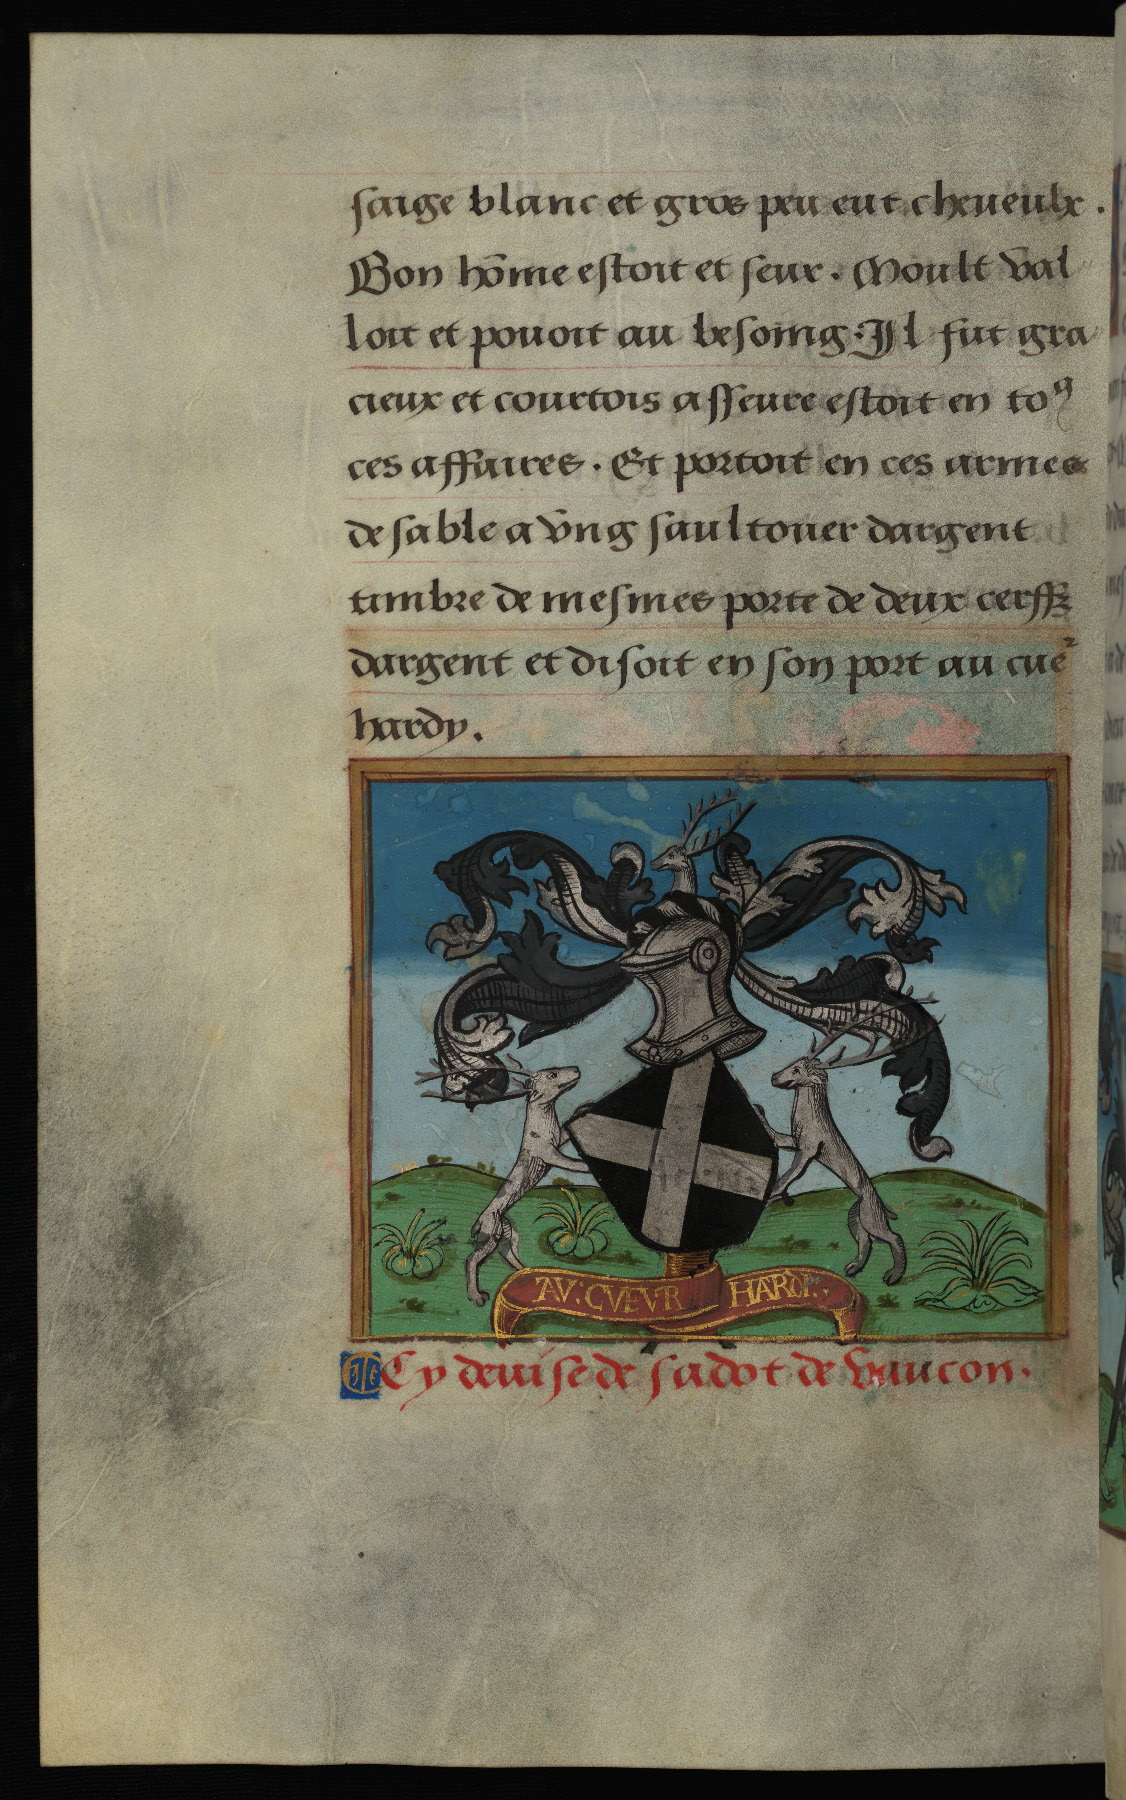 saige blanc et gros peu eut cheueulx .
Bon hōme estoit et seur . Moult val
loit et pouoit au besoing . Il fut gra
cieux et courtois asseure estoit en toꝰ
ces affaires . Et portoit en ces armes
de sable a vng saultouer dargent
timbre de mesmes porte de deux cerffz
dargent et disoit en son port au cueᷣ
hardy .
AV : CVEVR HARDI
Cy deuise de sadot de vaucon .